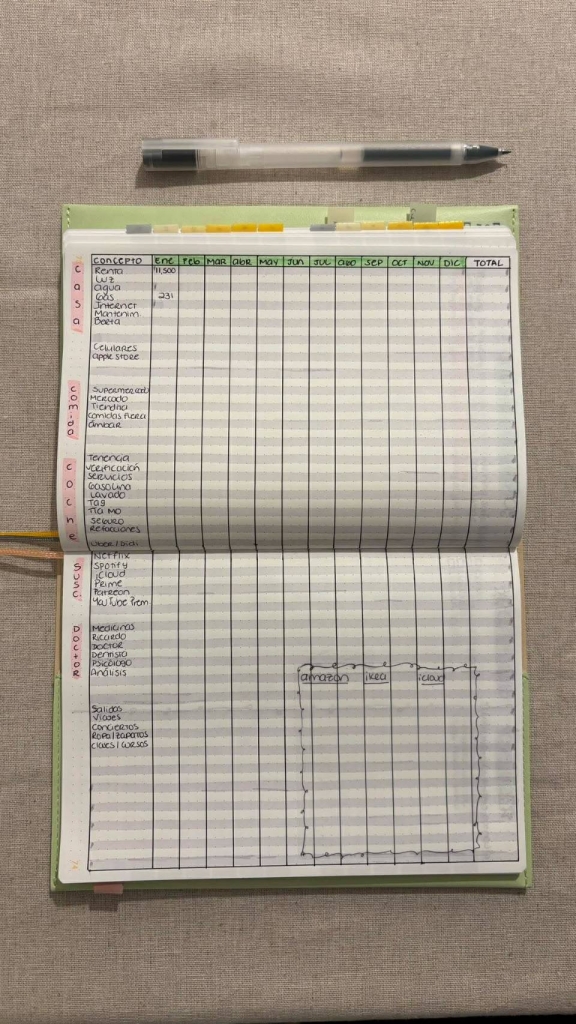 CONCEPTO Ene Feb MAR abr MAY JUN JUL AGO SEP OCT NOV DIC TOTAL
casa
Renta $11,500
Luz
agua
Gas 231
Internet
Mantenim
Celulares
apple store
comida
Supermercado
Mercado
Tiendita
comidas fuera
coche
Tenencia
verificación
servicios
Gasolina
Lavado
Tag
seguro
Refacciones
Uber/Didi
SUSC.
Netflix
Spotify
iCloud
Prime
Patreon
YouTube Prem.
DOCTOR
Medicinas
Ricardo
DOCTOR
Dentista
Psicólogo
Análisis
amazon ikea icloud
Salidas
Viajes
Conciertos
Ropa/zapatos
clases/cursos